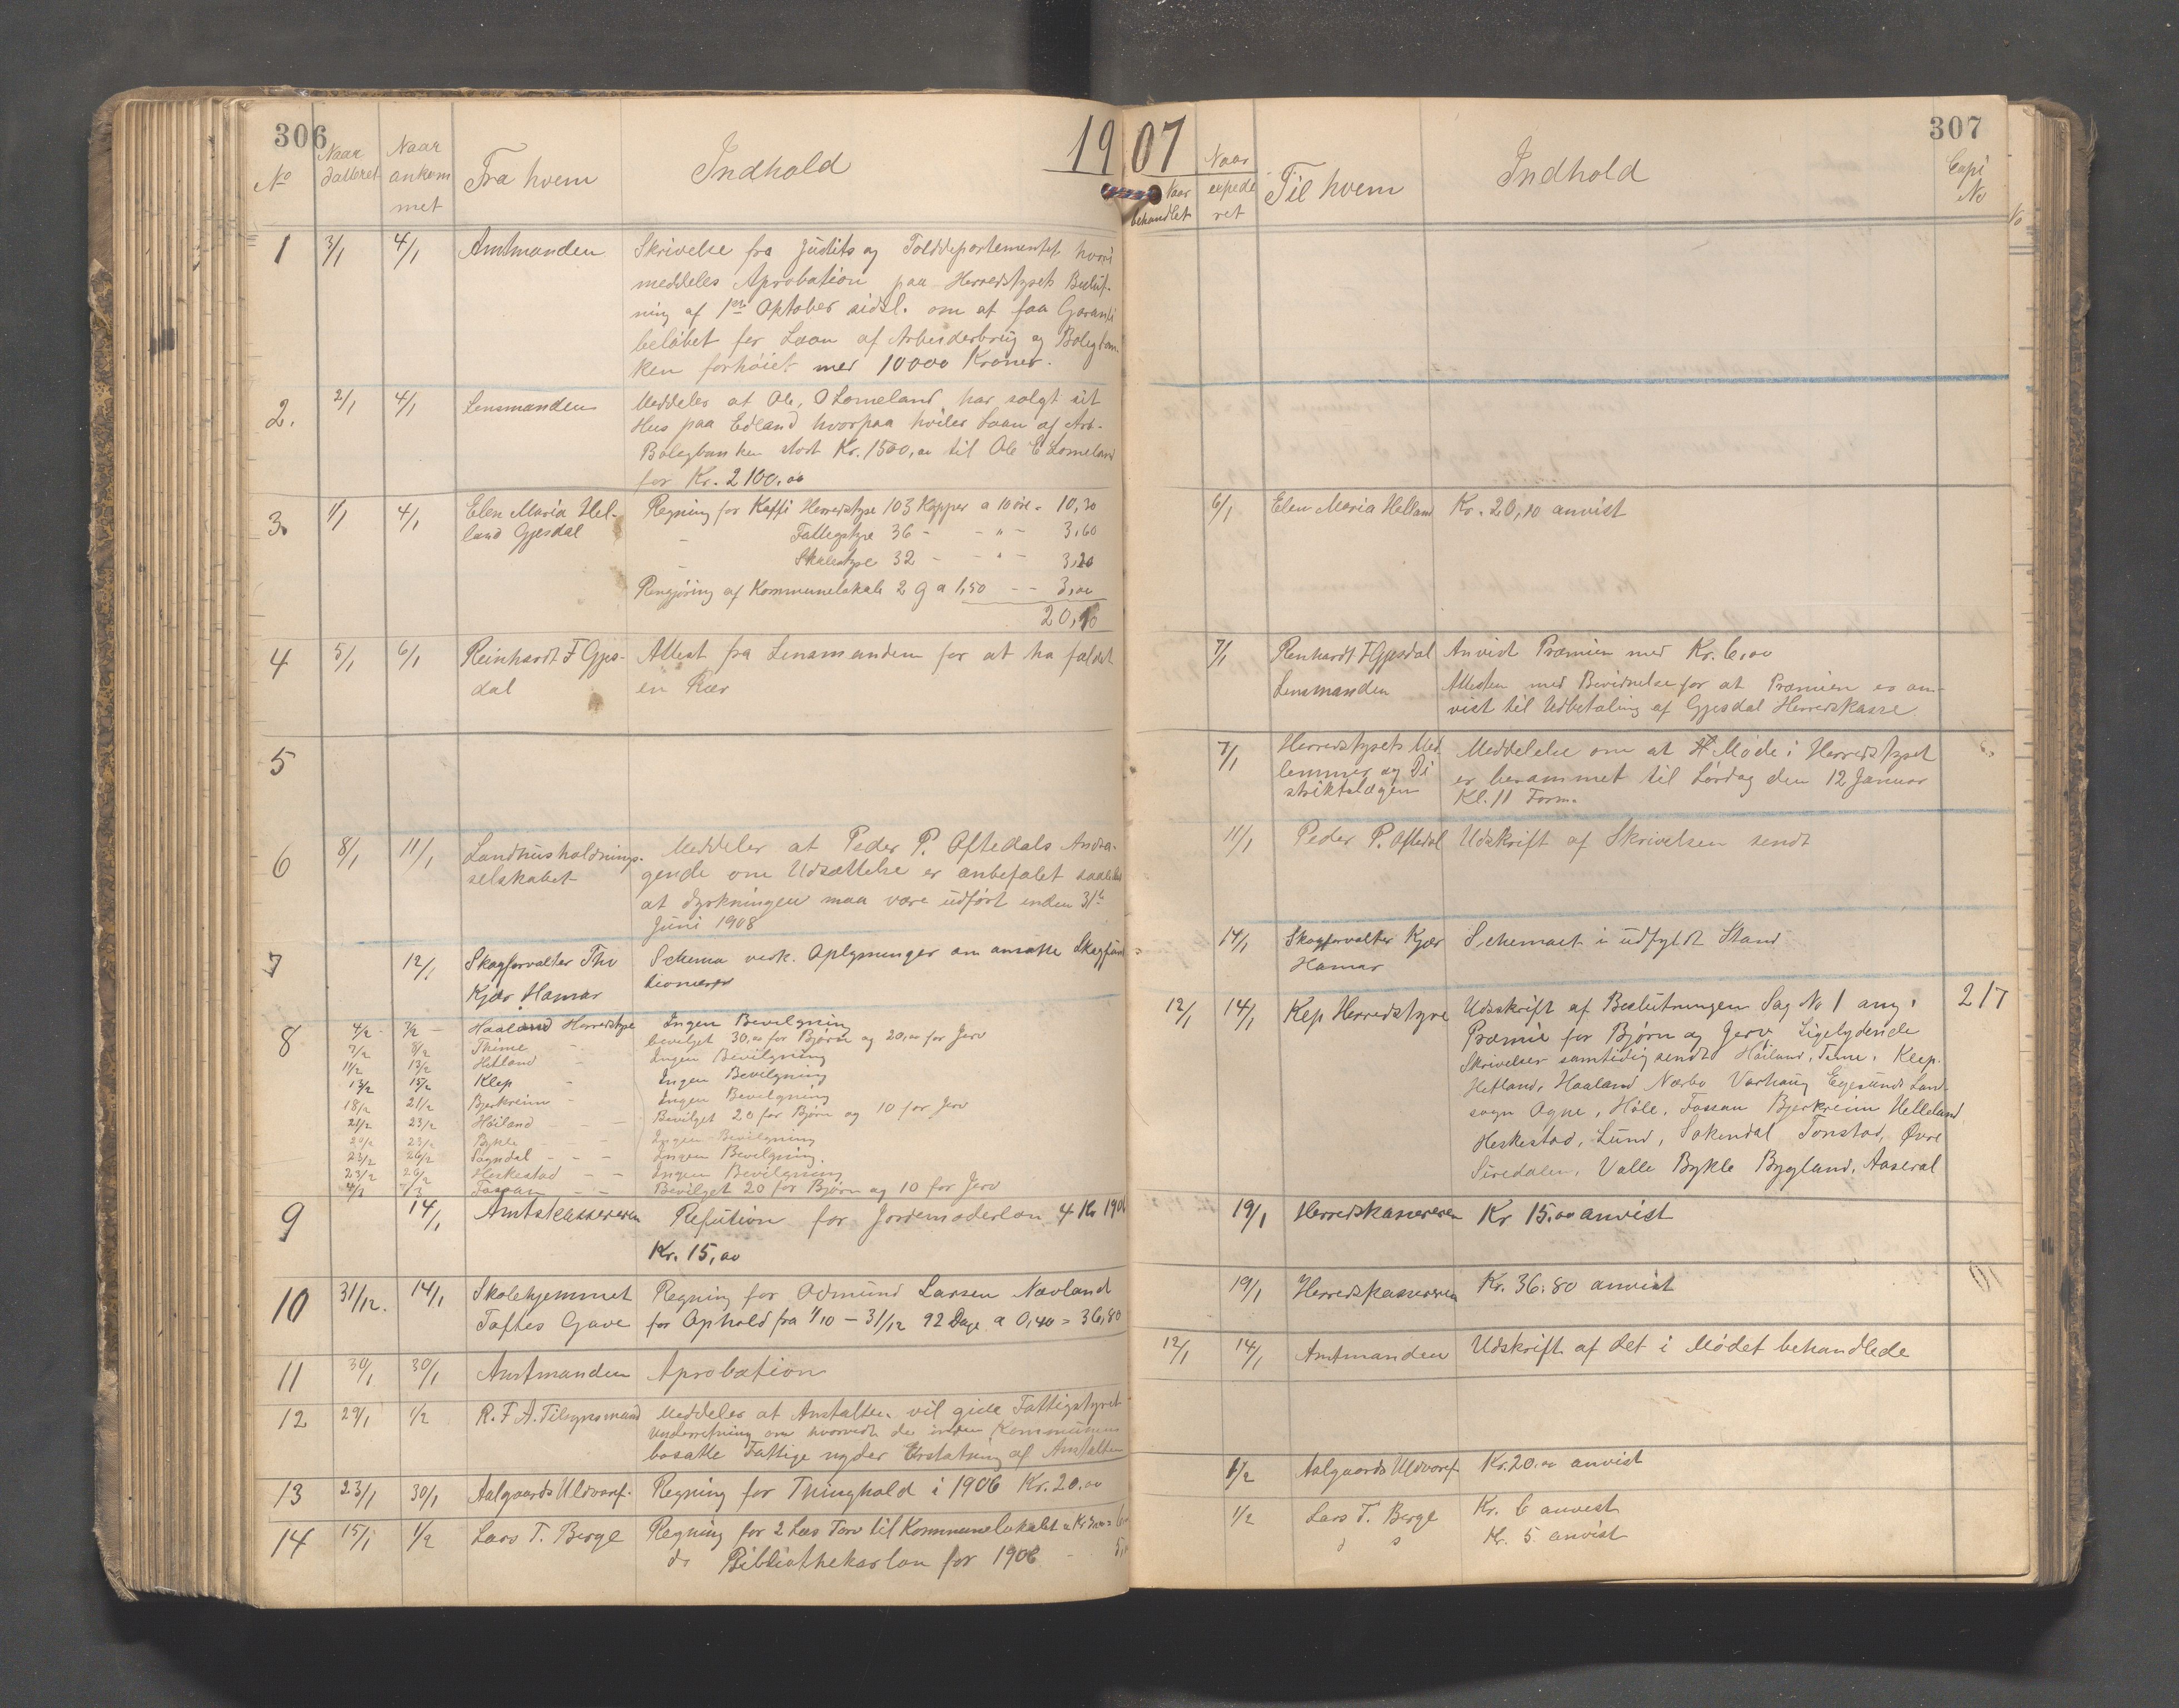 306
1907
No
Naar datteret
Naar ankom met
Fra hvem
Indhold
1 3/1 4/1 Amtmanden Skrivelse fra Justits og Tolddepartementet hvori
meddeles Aprobation paa Herredstyrets Beslut-
ning af 1ste Oktober sidstl. om at faa Garanti
beløbet for Laan af Arbeiderbrug og Boligban
ken forhøiet med 10000 Kroner.
2. 2/1 4/1 Lensmanden Meddeler at Ole, O Lomeland har solgt sit
Hus paa Edland hvorpaa hviler Laan af Arb-
Boligbanken stort Kr. 1500,00 til Ole E Lomeland
for Kr. 2100,00
3. 1/1 4/1 Elen Maria Hel- Regning for Kaffi Herredstyre 103 Kopper a 10 øre = 10,30
land Gjesdal Fattigstyre 36 - - " - 3,60
- Skolestyre 32 - - " - 3,20
Rengjøring af Kommunelokale 2 G a 1,50 - - 3,00
20,10
4 5/1 6/1 Reinhardt F Gjes- Attest fra Lensmanden for at ha fældet
dal en Ræv
5
6 8/1 11/1 Landhusholdnings- Meddeler at Peder P. Oftedals Andra-
selskabet gende om Udsættelse er anbefalet saaledes
at dyrkningen maa være udført inden 31te
Juni 1908
7 12/1 Skogforvalter Thv Schema vedk. Oplysninger om ansatte Skogfunk
Kjær Hamar tionærer
8 4/2 - 7/2 - Haaland Herredstyre Ingen Bevilgning
7/2 8/2 Thime - bevilget 30,00 for Bjørn og 20,00 for Jerv
11/2 13/2 Hetland - Ingen Bevilgning
13/2 15/2 Klep - Ingen Bevilgning
18/2 21/2 Bjerkreim - Ingen Bevilgning
21/2 23/2 Høiland - - Bevilget 20 for Bjørn og 10 for Jerv
23/2 Bykle - - Ingen Bevilgning
23/2 26/2 Sogndal - - - Ingen Bevilgning.
23/2 26/2 Heskestad - - Ingen Bevilgning
Fossan - - Bevilget 20 for Bjørn og 10 for Jerv
9 14/1 Amtskassereren Refution for Jordemoderløn 4 Kv 1906
Kr. 15,00
10 31/12. 14/1 Skolehjemmet Regning for Odmund Larsen Nævland
Toftes Gave for Ophold fra 1/10 - 31/12 92 Dage a 0,40 = 36,80
11 30/1 30/1 Amtmanden Aprobation
12 29/1 1/2 R. F A. Tilsynsmand Meddeler at Anstalten vil give Fattigstyret
Underretning om hvorvidt de inden Kommunens
bosatte Fattige nyder Erstatning af Anstalten
13 23/1 30/1 Aalgaards Uldvaref. Regning for Thinghold i 1906 Kr. 20,00
14 15/1 1/2 Lars T. Berge Regning for 2 Læs Torv til Kommunelokalet a Kr 3,00 = 6
do Bibliothekarløn for 1906 - 5,
307
Naar behandlet
Naar expede ret
Til hvem
Indhold
Copi No
No
6/1 Elen Maria Helland Kr. 20,10 anvist
7/1 Renhardt F Gjesdal Anvist Præmien med Kr. 6,00
Lensmanden Attesten med Bevidnelse for at Præmien er an-
vist til Udbetaling af Gjesdal Herredskasse
7/1 Herredstyrets Med Meddelelse om at Møde i Herredstyret
lemmer og Di er berammet til Lørdag den 12 Januar
striktslægen Kl. 11 Form.
11/1 Peder P. Oftedal Udskrift af Skrivelsen sendt
14/1 Skogforvalter Kjær Schemaet i udfyldt Stand
Hamar
12/1 14/1 Klep Herredstyre Udskrift af Beslutningen Sag No 1 ang. 217
Præmie for Bjørn og Jerv Ligelydende
Skrivelser samtidig sendt Høiland, Time, Klep.
Hetland, Haaland Nærbø Varhaug Egersunds Land-
sogn Ogne, Høle, Fossan Bjerkreim Helleland
Heskestad, Lund, Sokendal Tonstad, Øvre
Siredalen, Valle Bykle Bygland, Aaseral
19/1 Herredskassereren Kr 15,00 anvist
19/1 Herredskassereren Kr. 36,80 anvist
12/1 14/1 Amtmanden Udskrift af det i Mødet behandlede
1/2 Aalgaards Uldvaref. Kr. 20,00 anvist
1/2 Lars T. Berge Kr. 6 anvist
Kr. 5 anvist